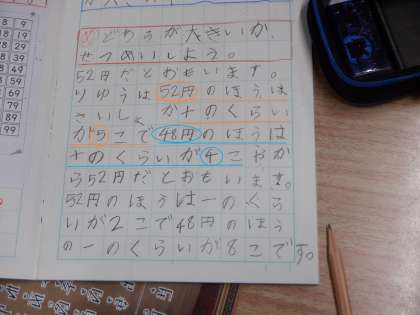 どちらが大きいか、
せつめいしよう。
52円だとおもいます。
りゆうは52円のほうは
さいしょが十のくらい
が5こで48円のほうは
十のくらいが4こだか
ら52円だとおもいます。
52円のほうは一のくら
いが2こで48円のほう
の一のくらいが8こです。